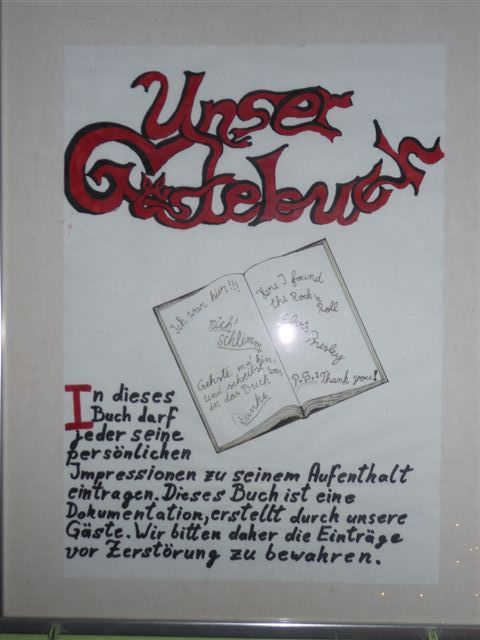 Unser
Gästebuch
Ich war hier!!!
nich'
schlimm
Gehste ma' hin,
und schreibst was
in das Buch
Danke
Here I found
the Rock'n
Roll
Elvis
Presley
P.S.: Thank you!
In dieses
Buch darf
jeder seine
persönlichen
Impressionen zu seinem Aufenthalt
eintragen. Dieses Buch ist eine
Dokumentation, erstellt durch unsere
Gäste. Wir bitten daher die Einträge
vor Zerstörung zu bewahren.